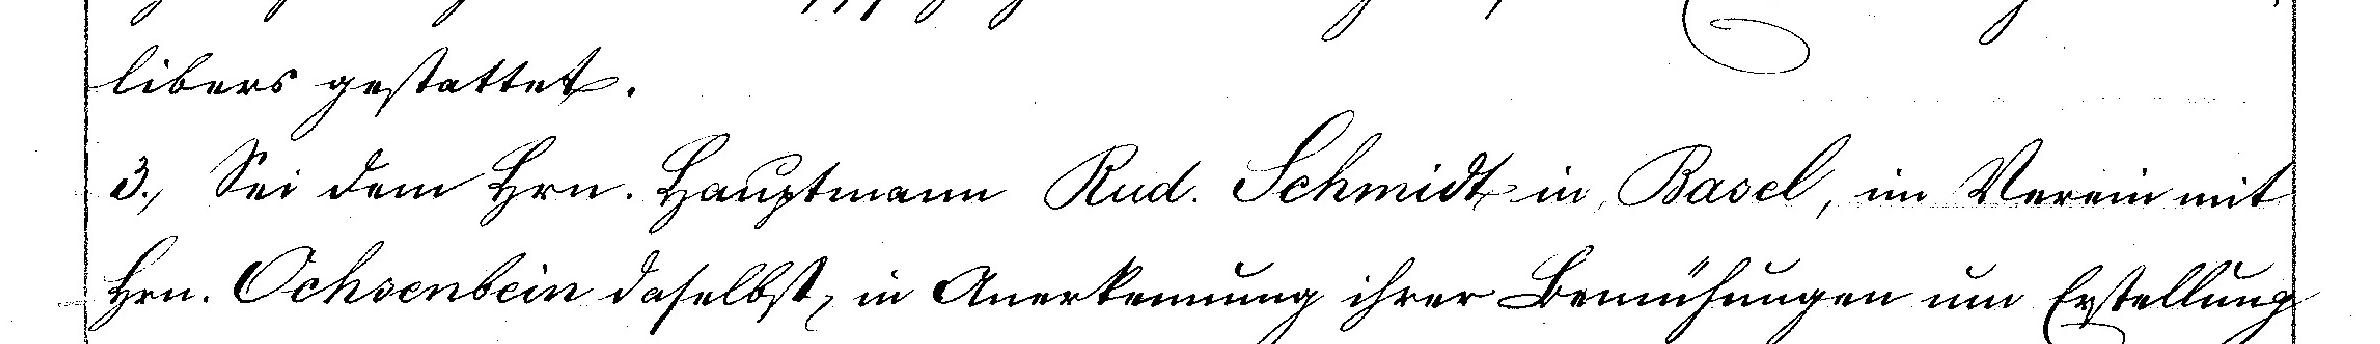 libers gestattet.
3., Sei dem Hrn. Hauptmann Rud. Schmidt in Basel, im Verein mit
Hrn. Ochsenbein daselbst, in Anerkennung ihrer Bemühungen um Erstellung